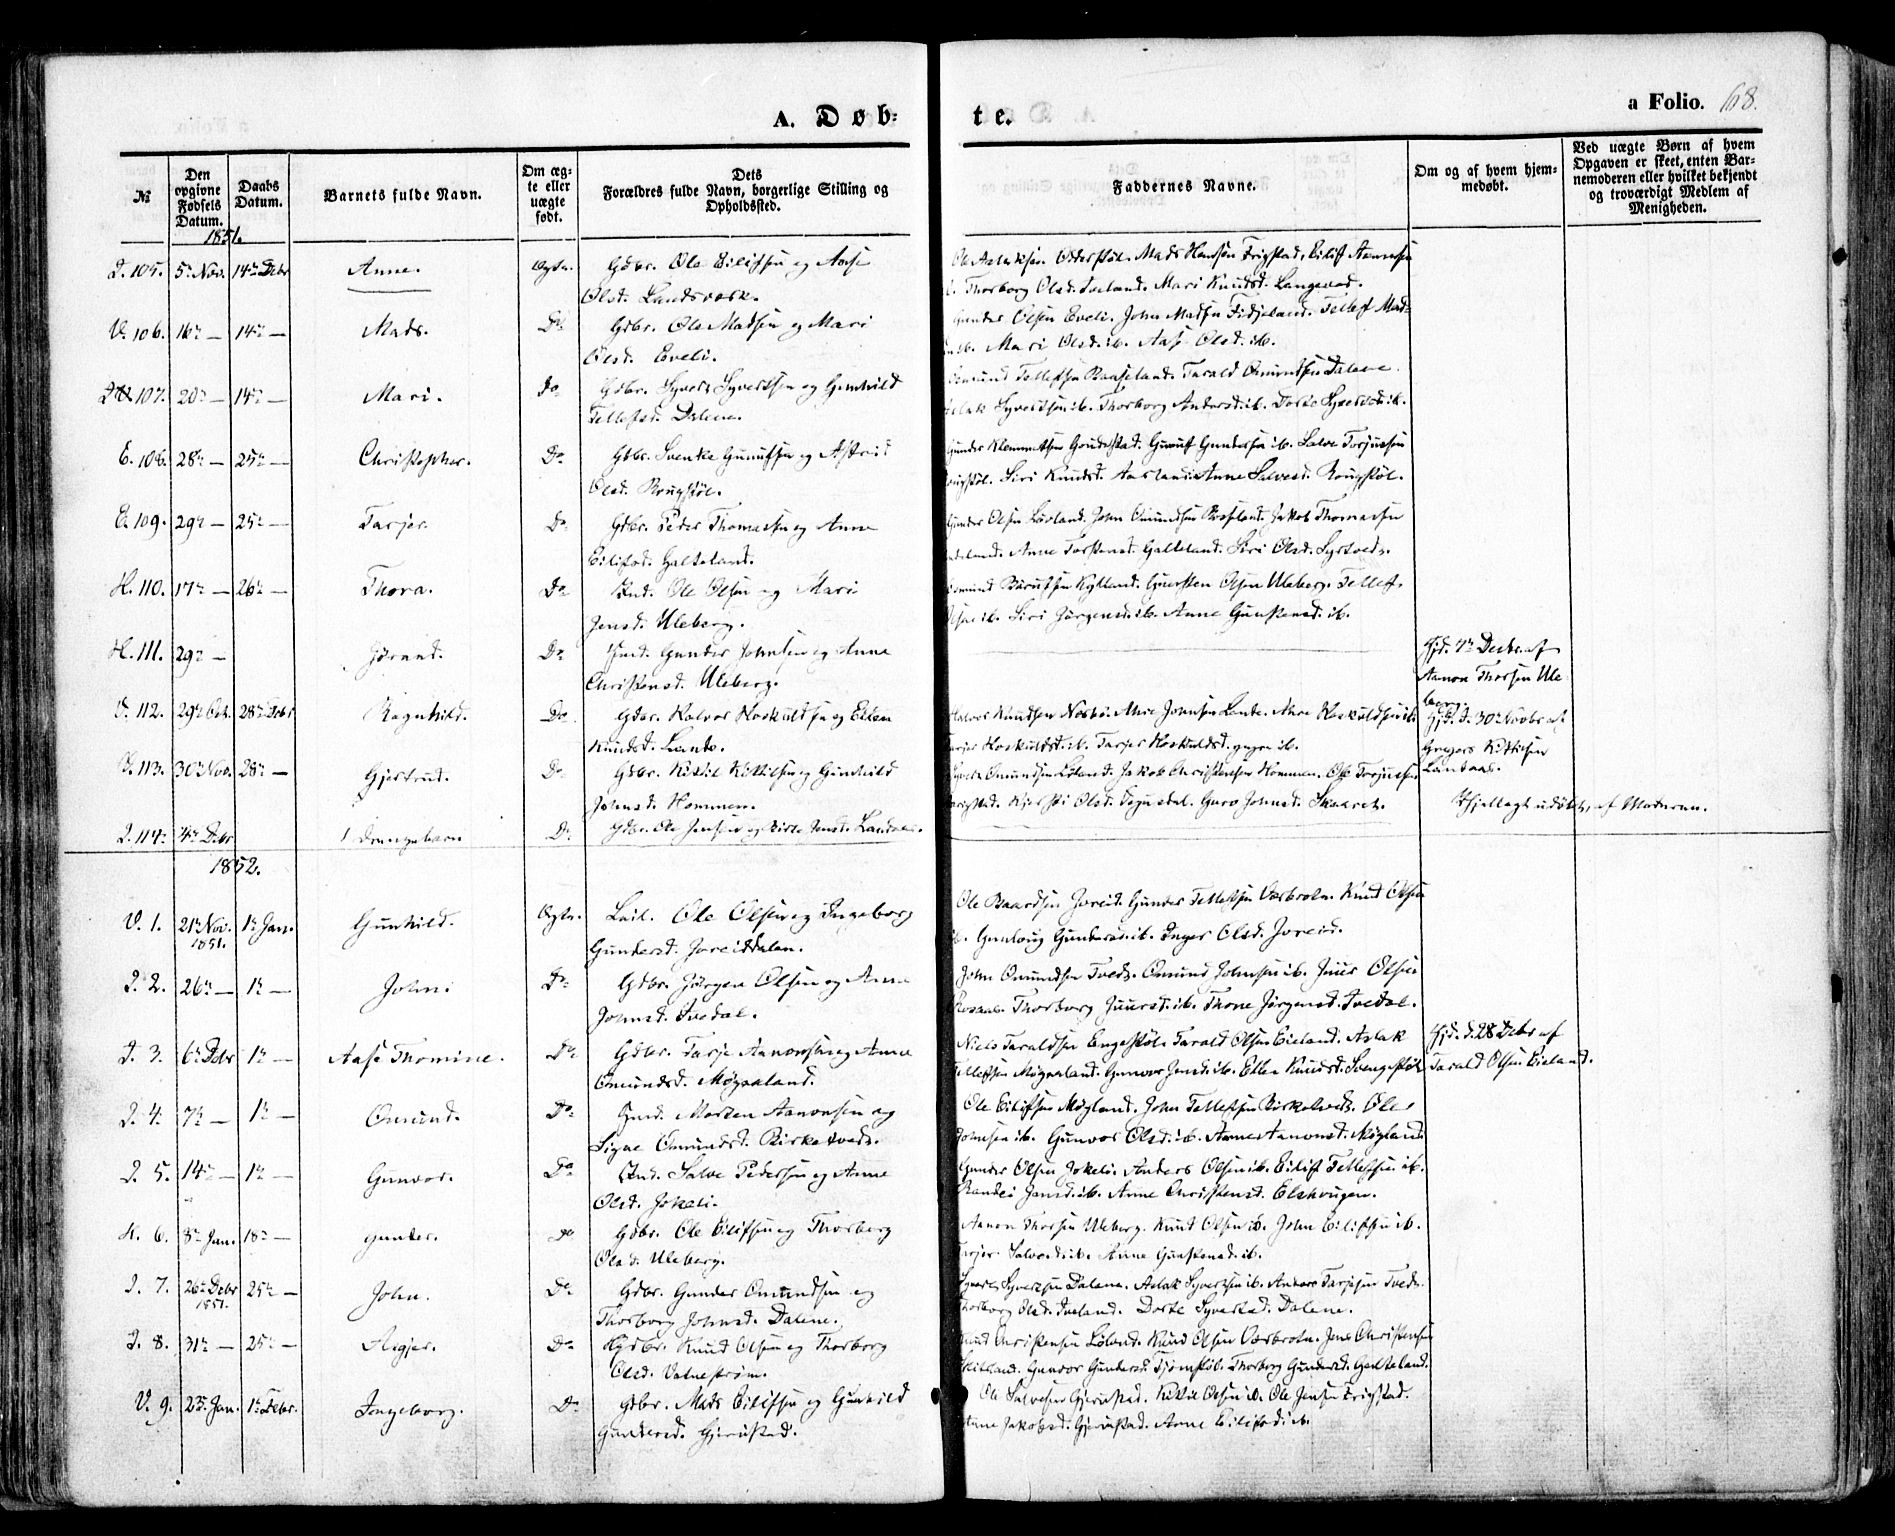 A. Døb=
te.
a Folio. 68.
№
Den opgivne Fødsels Datum.
Daabs Datum.
Barnets fulde Navn.
Om ægte eller uægte født.
Dets Forældres fulde Navn, borgerlige Stilling og Opholdssted.
Faddernes Navne.
Om og af hvem hjemmedøbt.
Ved uægte Børn af hvem Opgaven er skeet, enten Barnemoderen eller hvilket bekjendt og troværdigt Medlem af Menigheden.
1851.
105. 5te Nov. 14de Debr Anne. Ægte. Gdbr. Ole Eilifsen og Aase
Olsd. Landsværk.
Mads Hansen Frigstad, Eilif Aanensen
Thorborg Olsd. Iveland. Mari Knudsd. Langerad.
V. 106. 16de — 14de — Mads. Do Gdbr. Ole Madsen og Mari
Olsd. Eveli.
Gunder Olsen Eveli. John Madsen Fidjeland. Tellef Mad-
ib. Mari Olsd. ib. Aase Olsd. ib.
107. 20de — 14de — Mari. Do Gdbr. Syvert Syvertsen og Gunhild
Tellefsd. Dalene.
Omund Tellefsen Baaseland. Tarald Omundsen Dalene.
Aslak Syvertsen ib. Thorborg Andersd. ib. Dorte Syvertsd. ib.
E. 108. 28de — 25de — Christopher. Do Gdbr. Svenke Gunufsen og Astrid
Olsd. Rougstøl.
Gunder Klemmetsen Goudestad. Gunuf Gundersen ib. Salve Torjussen
Rougstøl. Siri Knudsd. Anne Salvesd. Rougstøl.
E. 109. 29de — 25de — Tarjer. Do Gdbr. Peder Thomassen og Anne
Eilifsd. Galteland.
Gunder Olsen Løvland. John Omundsen Jakob Thomassen
Anne Torstensd. Galteland. Siri Olsd.
H. 110. 17de — 26de — Thora. Do Ind. Ole Olsen og Mari
Jensd. Uleberg.
Gunsten Olsen Uleberg. Tellef
Olsen ib. Siri Jørgensd. ib. Anne Gunstensd. ib.
H. 111. 29de — Jørund. Do Ind. Gunder Johnsen og Anne
Christensd. Uleberg.
Hjd. 7de Decbr. af
Aanon Thorsen Ule
berg.
112. 29de Oct. 28de Debr Ragnhild. Do Gdbr. Halvor Hoskuldsen og Ellen
Knudsd. Lande.
Halvor Knudsen Johnsen Lande. Hoskuldsen ib.
Tarjer Hoskuldsd. ib. Tarjer Hoskuldsd. yngre ib.
Hjd. d. 30de Novbr af
Gregers Kittilsen
Landaas.
113. 30te Nov. 28de — Gjertrud. Do Gdbr. Kittil Kittilsen og Gunhild
Johnsd. Hommen.
Omundsen Jakob Christensen Hommen. Ole Torjussen
Frigstad. Kjersti Olsd. Guro Johnsd. Skaaret.
114. 4de Debr 1 Drengebarn Do Gdbr. Ole Jensen og Birte Jensd. Landaas.
af Moderen.
1852.
V. 1. 21de Nov. 1851. 1te Jan. Gunhild. Ægte. Leil. Ole Olsen og Ingeborg
Gundersd. Joreiddalen.
Ole Baardsen Joreid. Gunder Tellefsen Værbroten. Knud Olsen
ib. Gunloug Gundersd. ib. Inger Olsd. Joreid.
2. 26de — 1te — John. Do Gdbr. Jørgen Olsen og Anne
Johnsd. Ivedal.
John Omundsen Tvedt. Omund Johnsen ib. Juur Olsen
Thorborg Juursd. ib. Thone Jørgensd. Ivedal.
3. 6te Debr 1te — Aase Thomine. Do Gdbr. Tarje Aanonsen og Anne
Omundsd. Møgaaland.
Niels Taraldsen Engestøl. Tarald Olsen Eieland. Aslak
Tellefsen Møgaaland. Gunvor Jensd. ib. Ellen Knudsd.
Hjd. d. 28 Debr af
Tarald Olsen Eieland.
4. 7de — 1te — Omund. Do Ind. Morten Aanonsen og
Signe Omundsd. Birketvedt.
Ole Eilifsen Møgland. John Tellefsen Birketvedt. Ole
Johnsen ib. Gunvor Olsd. ib. Anne Aanonsd. Møgland.
5. 14de — 1te — Gunvor. Do Ind. Salve Pedersen og Anne
Olsd. Jokeli.
Gunder Olsen Jokeli. Anders Olsen ib. Eilif Tellefsen ib.
Randei Jensd. ib. Anne Christensd. Elshougen.
H. 6. 8de Jan. 18de — Gunder. Do Gdbr. Ole Eilifsen og Thorborg
Olsd. Uleberg.
Aanon Thorsen Uleberg. Knud Olsen ib. John Eilifsen ib.
Tarjer Salvesd. ib. Anne Gunstensd. ib.
7. 26de Debr 1851. 25de — John. Do Gdbr. Gunder Omundsen og
Thorborg Johnsd. Dalene.
Syvert Syvertsen Dalene. Aslak Syvertsen ib. Anders Tarjesen Tvedt.
Thorborg Olsd. Iveland. Dorte Syvertsd. Dalene.
8. 31te — 25de — Aigjer. Do Gdbr. Knud Olsen og Thorborg
Olsd. Vatnestrøm.
Knud Christensen Løland. Knud Olsen Værbroten. Jens Christensen
Gunvor Gundersd. Thorborg Gundersd. Galteland.
V. 9. 2den Jan. 1te Febr. Ingeborg. Do Gdbr. Mads Eilifsen og Gunhild
Gundersd. Gjerustad.
Ole Salvesen Gjerustad. Kittil Olsen ib. Ole Jensen Frigstad.
Anne Jakobsd. Gjerustad. Anne Eilifsd. ib.